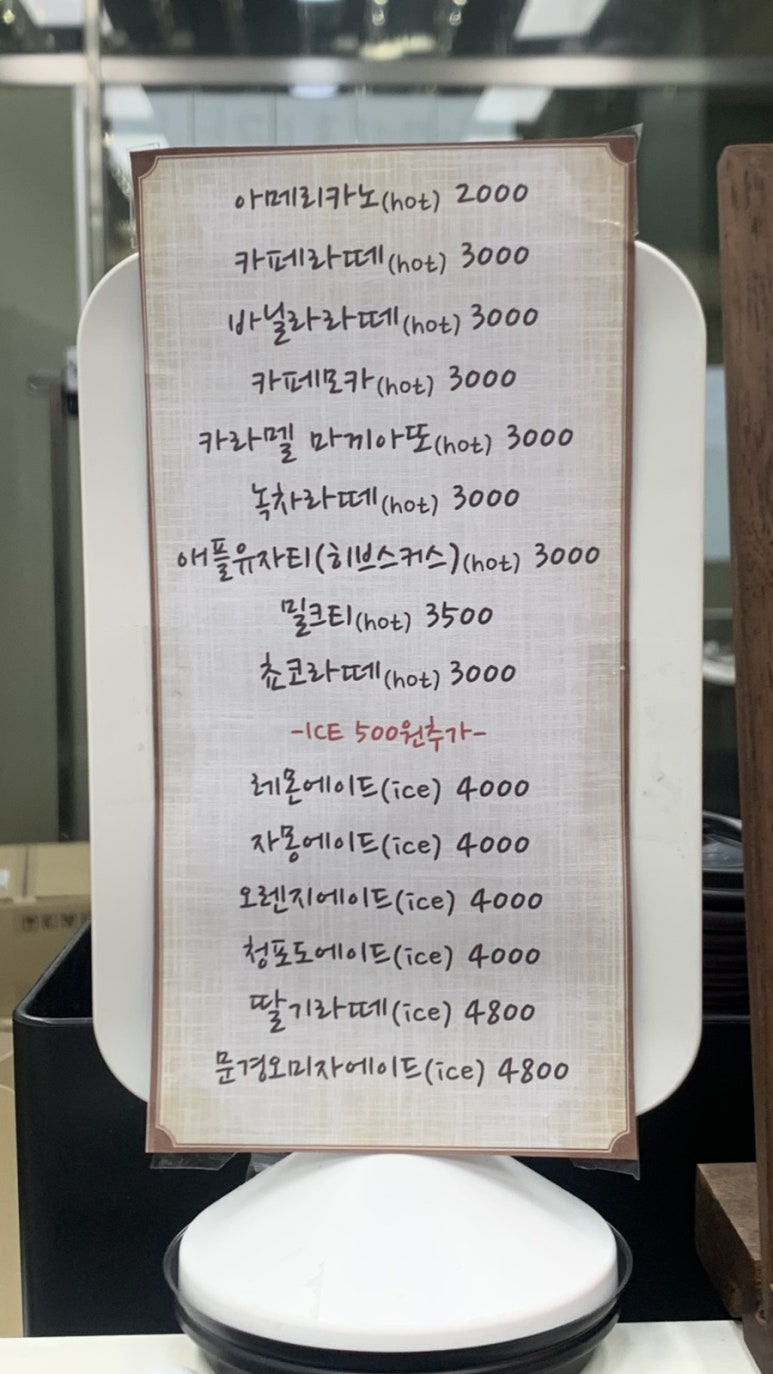 아메리카노(hot) 2000
카페라떼(hot) 3000
바닐라라떼(hot) 3000
카페모카(hot) 3000
카라멜 마끼아또(hot) 3000
녹차라떼(hot) 3000
애플유자티(히브스커스)(hot) 3000
밀크티(hot) 3500
쵸코라떼(hot) 3000
-ICE 500원추가-
레몬에이드(ice) 4000
자몽에이드(ice) 4000
오렌지에이드(ice) 4000
청포도에이드(ice) 4000
딸기라떼(ice) 4800
문경오미자에이드(ice) 4800